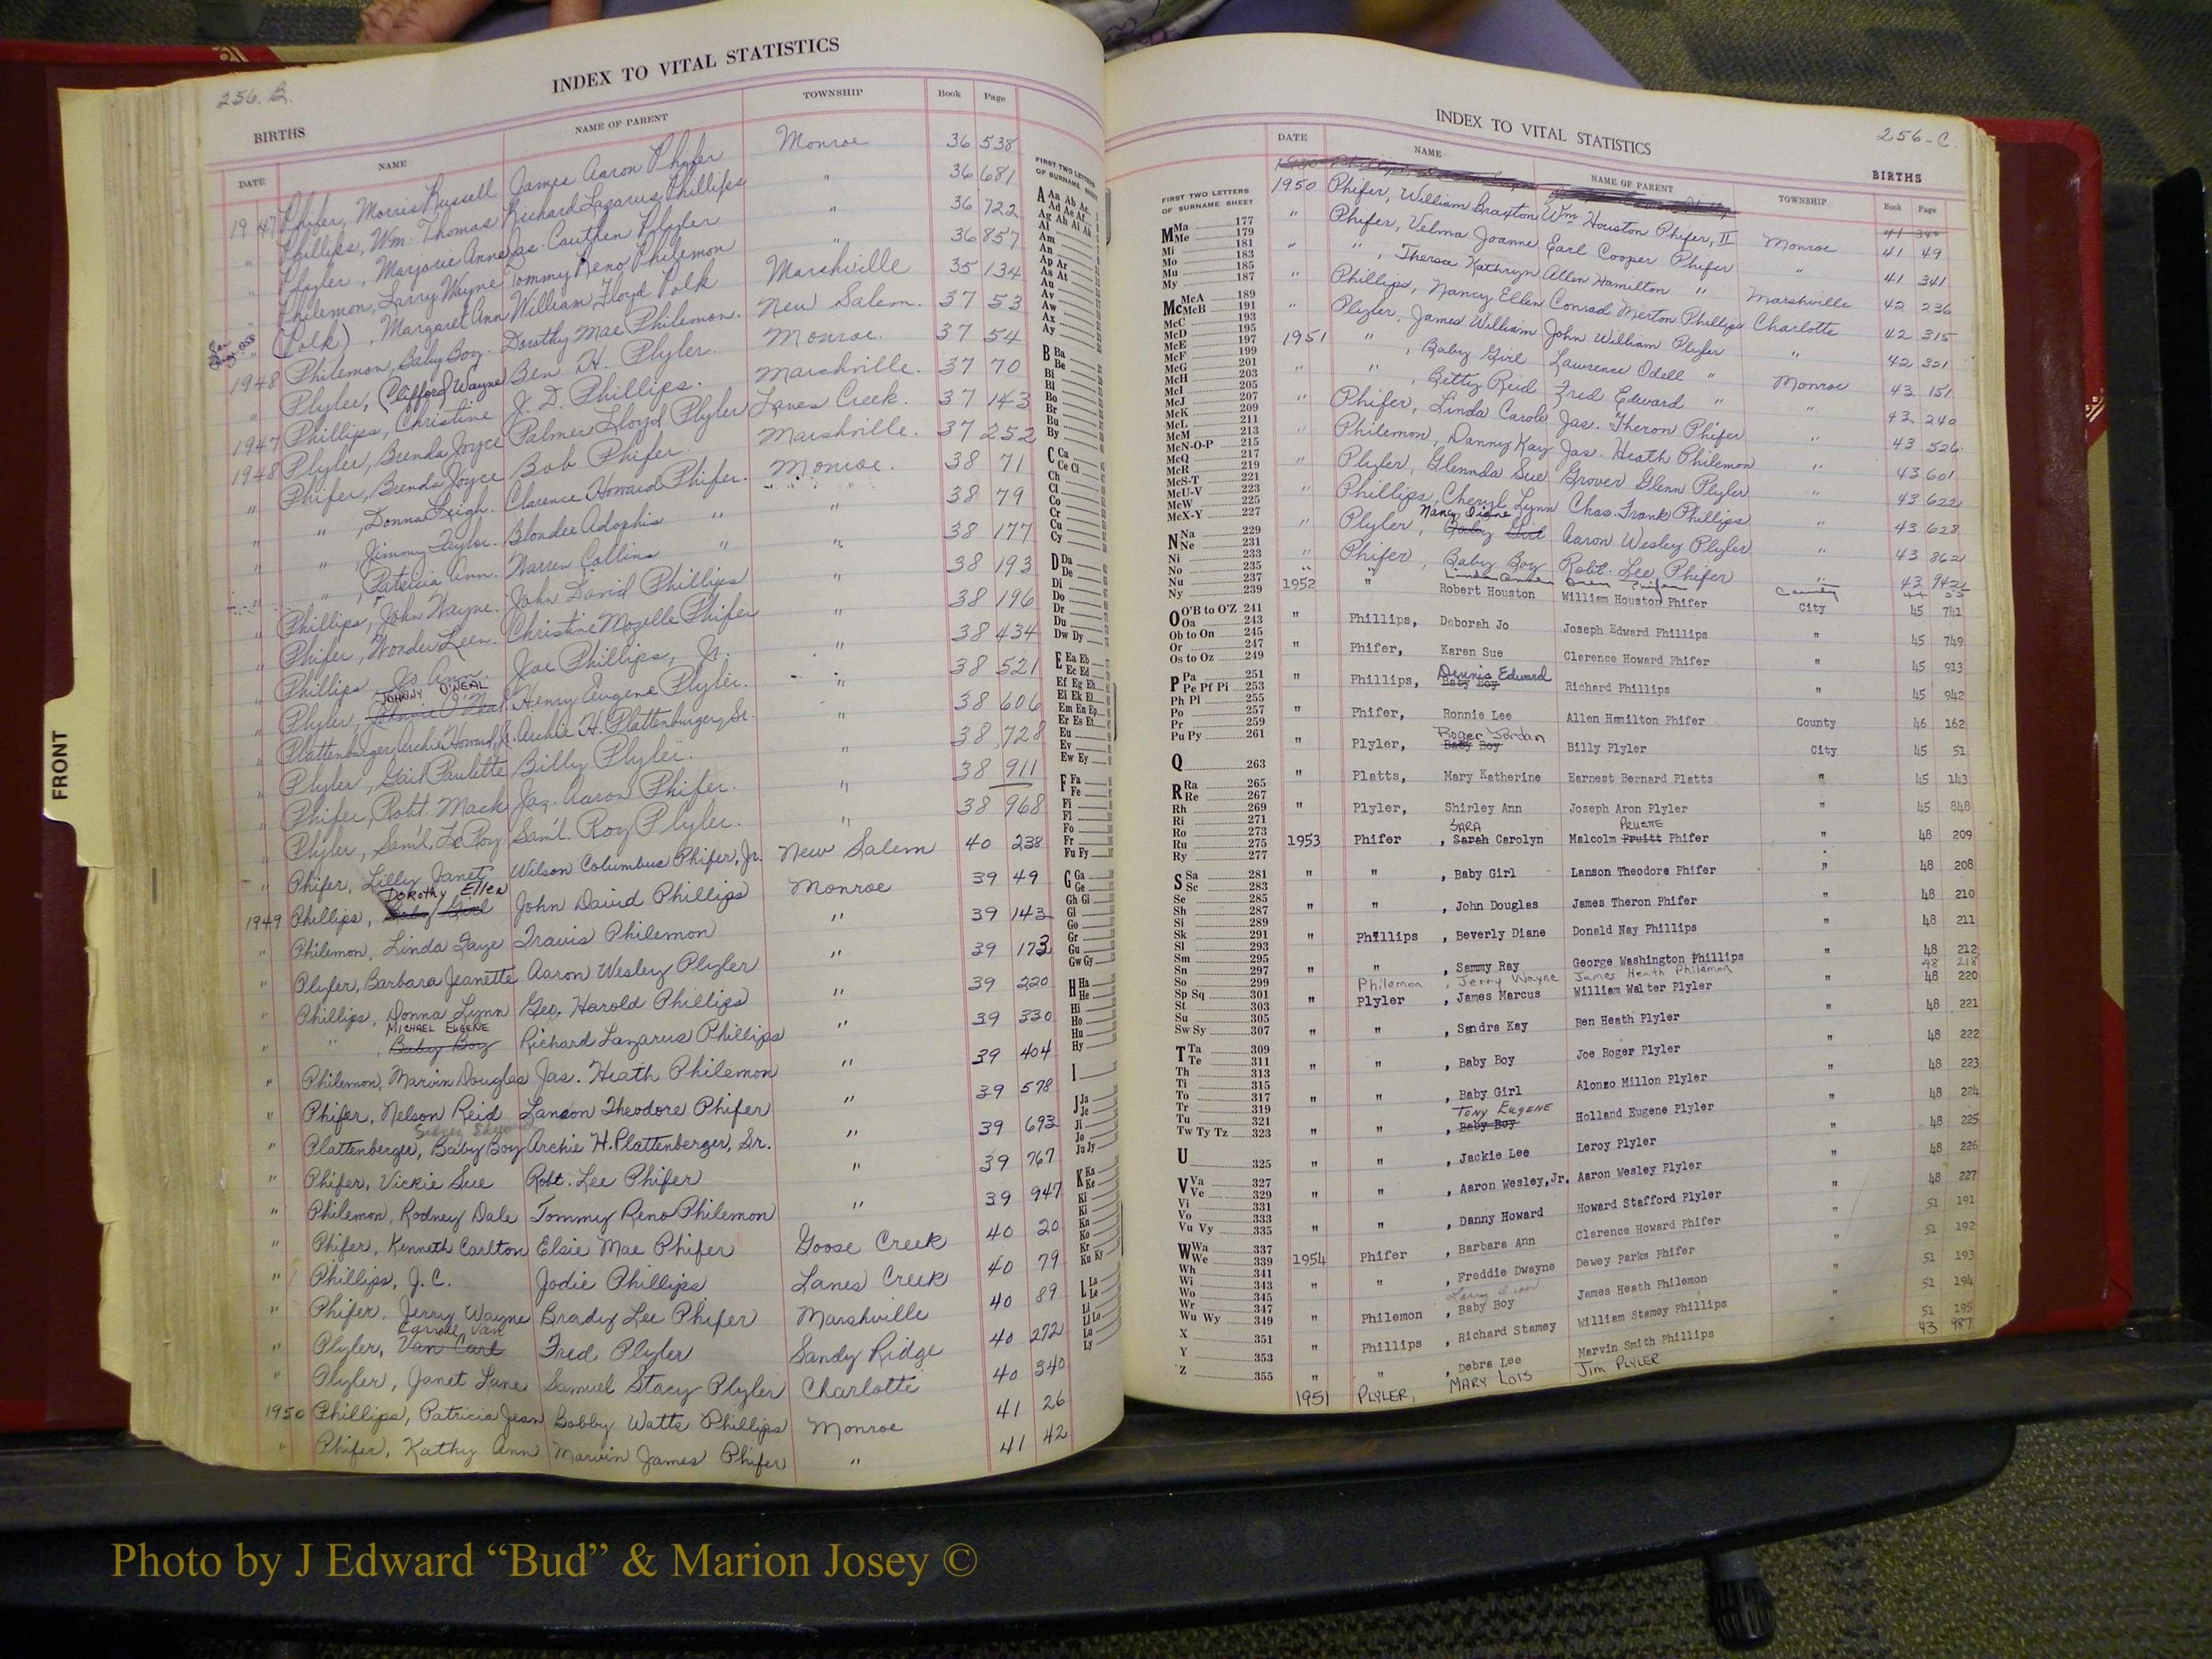 256. B.
INDEX TO VITAL STATISTICS
BIRTHS
DATE NAME NAME OF PARENT TOWNSHIP Book Page
1947 Phifer, Morris Russell James Aaron Phifer Monroe 36 538
" Phillips, Wm. Thomas Richard Lazarus Phillips " 36 681
" Plyler, Marjorie Anne Jas. Cauthen Plyler " 36 722
" Philemon, Larry Wayne Tommy Reno Philemon " 36 857
" (Polk), Margaret Ann William Floyd Polk Marshville 35 134
1948 Philemon, Baby Boy. Dorothy Mae Philemon. New Salem. 37 53
" Plyler, (Clifford Wayne) Ben H. Plyler. Monroe. 37 54
1947 Phillips, Christine J. D. Phillips. Marshville. 37 70
1948 Plyler, Brenda Joyce Palmer Lloyd Plyler Lanes Creek. 37 143
" Phifer, Brenda Joyce Bob Phifer. Marshville. 37 252
" " , Donna Leigh. Clarence Howard Phifer. Monroe. 38 71
" " , Jimmy Taylor. Blondee Adophis " " 38 79
" " , Patricia Ann. Warren Collins " " 38 177
" Phillips, John Wayne. John David Phillips " 38 193
" Phifer, Wonder Leen. Christine Mozelle Phifer " 38 196
" Phillips, Jo Ann. Joe Phillips, Jr. " 38 434
JOHNNY O'NEAL
" Plyler, Johnnie O'Neal Henry Eugene Plyler. " 38 521
" Plattenburger, Archie Howard, Jr. Archie H. Plattenburger, Sr. " 38 606
" Plyler, Gail Paulette Billy Plyler. " 38 728
" Phifer, Robt. Mack Jas. Aaron Phifer. " 38 911
" Plyler, Sam'l. Le Roy Sam'l. Roy Plyler. " 38 968
" Phifer, Lilly Janet Wilson Columbus Phifer, Jr. New Salem 40 238
DOROTHY Ellen
1949 Phillips, Baby Girl John David Phillips Monroe 39 49
" Philemon, Linda Faye Travis Philemon " 39 143
" Plyler, Barbara Jeanette Aaron Wesley Plyler " 39 173
" Phillips, Donna Lynn Geo. Harold Phillips " 39 220
MICHAEL EUGENE
" " , Baby Boy Richard Lazarus Phillips " 39 330
" Philemon, Marvin Douglas Jas. Heath Philemon " 39 404
" Phifer, Nelson Reid Lanson Theodore Phifer " 39 578
" Plattenberger, Baby Boy Archie H. Plattenberger, Sr. " 39 693
" Phifer, Vickie Sue Robt. Lee Phifer " 39 767
" Philemon, Rodney Dale Tommy Reno Philemon " 39 947
" Phifer, Kenneth Carlton Elsie Mae Phifer Goose Creek 40 20
" Phillips, J.C. Jodie Phillips Lanes Creek 40 79
" Phifer, Jerry Wayne Brady Lee Phifer Marshville 40 89
" Plyler, Van Carl Fred Plyler Sandy Ridge 40 272
" Plyler, Janet Lane Samuel Stacy Plyler Charlotte 40 340
1950 Phillips, Patricia Jean Bobby Watts Phillips Monroe 41 26
" Phifer, Kathy Ann Marvin James Phifer " 41 42
FRONT
FIRST TWO LETTERS
OF SURNAME SHEET
A Aa Ab Ac
Ad Ae Af
Ag Ah Ai Ak
Al
Am
An
Ap Ar
As At
Au
Av
Aw
Ax
Ay
B Ba
Be
Bi
Bl
Bo
Br
Bu
By
C Ca
Ce Ci
Ch
Cl
Co
Cr
Cu
Cy
D Da
De
Di
Do
Dr
Du
Dw Dy
E Ea Eb
Ec Ed
Ef Eg Eh
Ei Ek El
Em En Ep
Er Es Et
Eu
Ev
Ew Ey
F Fa
Fe
Fi
Fl
Fo
Fr
Fu Fy
G Ga
Ge
Gh Gi
Gl
Go
Gr
Gu
Gw Gy
H Ha
He
Hi
Ho
Hu
Hy
I
J Ja
Je
Ji
Jo
Ju Jy
K Ka
Ke
Ki
Kl
Kn
Ko
Kr
Ku Ky
L La
Le
Li
Ll Lo
Lu
Ly
INDEX TO VITAL STATISTICS
256-C.
BIRTHS
FIRST TWO LETTERS
OF SURNAME SHEET
M Ma 177
Me 179
Mi 181
Mo 183
Mu 185
My 187
Mc McA 189
McB 191
McC 193
McD 195
McE 197
McF 199
McG 201
McH 203
McI 205
McJ 207
McK 209
McL 211
McM 213
McN-O-P 215
McQ 217
McR 219
McS-T 221
McU-V 223
McW 225
McX-Y 227
N Na 229
Ne 231
Ni 233
No 235
Nu 237
Ny 239
O O'B to O'Z 241
Oa 243
Ob to On 245
Or 247
Os to Oz 249
P Pa 251
Pe Pf Pi 253
Ph Pl 255
Po 257
Pr 259
Pu Py 261
Q 263
R Ra 265
Re 267
Rh 269
Ri 271
Ro 273
Ru 275
Ry 277
S Sa 281
Sc 283
Se 285
Sh 287
Si 289
Sk 291
Sl 293
Sm 295
Sn 297
So 299
Sp Sq 301
St 303
Su 305
Sw Sy 307
T Ta 309
Te 311
Th 313
Ti 315
To 317
Tr 319
Tu 321
Tw Ty Tz 323
U 325
V Va 327
Ve 329
Vi 331
Vo 333
Vu Vy 335
W Wa 337
We 339
Wh 341
Wi 343
Wo 345
Wr 347
Wu Wy 349
X 351
Y 353
Z 355
DATE NAME NAME OF PARENT TOWNSHIP Book Page
1950 Phifer, William Braxton Wm Houston Phifer, II Monroe 41 49
" Phifer, Velma Joanne Earl Cooper Phifer " 41 341
" " , Theresa Kathryn Allen Hamilton " Marshville 42 236
" Phillips, Nancy Ellen Conrad Merton Phillips Charlotte 42 315
" Plyler, James William John William Plyler " 42 321
1951 " , Baby Girl Lawrence Odell " Monroe 43 151
" " , Betty Reid Fred Edward " " 43 240
" Phifer, Linda Carole Jas. Theron Phifer " 43 526
" Philemon, Danny Kay Jas. Heath Philemon " 43 601
" Plyler, Glennda Sue Grover Glenn Plyler " 43 622
" Phillips, Cheryl Lynn Chas. Frank Phillips " 43 628
Nancy Diane
" Plyler, Baby Girl Aaron Wesley Plyler " 43 862
" Phifer, Baby Boy Robt. Lee Phifer " 43 942
1952 " Robert Houston William Houston Phifer City 45 741
" Phillips, Deborah Jo Joseph Edward Phillips " 45 749
" Phifer, Karen Sue Clarence Howard Phifer " 45 913
Dennis Edward
" Phillips, Baby Boy Richard Phillips " 45 942
" Phifer, Ronnie Lee Allen Hamilton Phifer County 46 162
Roger Jordan
" Plyler, Baby Boy Billy Plyler City 45 51
" Platts, Mary Katherine Earnest Bernard Platts " 45 143
" Plyler, Shirley Ann Joseph Aron Plyler " 45 848
SARA PRUETTE
1953 Phifer , Sarah Carolyn Malcolm Pruitt Phifer " 48 209
" " , Baby Girl Lanson Theodore Phifer " 48 208
" " , John Douglas James Theron Phifer " 48 210
" Phillips , Beverly Diane Donald Nay Phillips " 48 211
" " , Sammy Ray George Washington Phillips " 48 212
Philemon , Jerry Wayne James Heath Philemon 48 218
" Plyler , James Marcus William Walter Plyler " 48 220
" " , Sandra Kay Ben Heath Plyler " 48 221
" " , Baby Boy Joe Roger Plyler " 48 222
" " , Baby Girl Alonzo Millon Plyler " 48 223
TONY EUGENE
" " , Baby Boy Holland Eugene Plyler " 48 224
" " , Jackie Lee Leroy Plyler " 48 225
" " , Aaron Wesley,Jr. Aaron Wesley Plyler " 48 226
" " , Danny Howard Howard Stafford Plyler " 48 227
1954 Phifer , Barbara Ann Clarence Howard Phifer " 51 191
" " , Freddie Dwayne Dewey Parks Phifer " 51 192
" Philemon , Baby Boy James Heath Philemon " 51 193
" Phillips , Richard Stamey William Stamey Phillips " 51 194
" " , Debra Lee Marvin Smith Phillips " 51 195
1951 PLYLER, MARY LOIS JIM PLYLER 43 987
Photo by J Edward “Bud” & Marion Josey ©